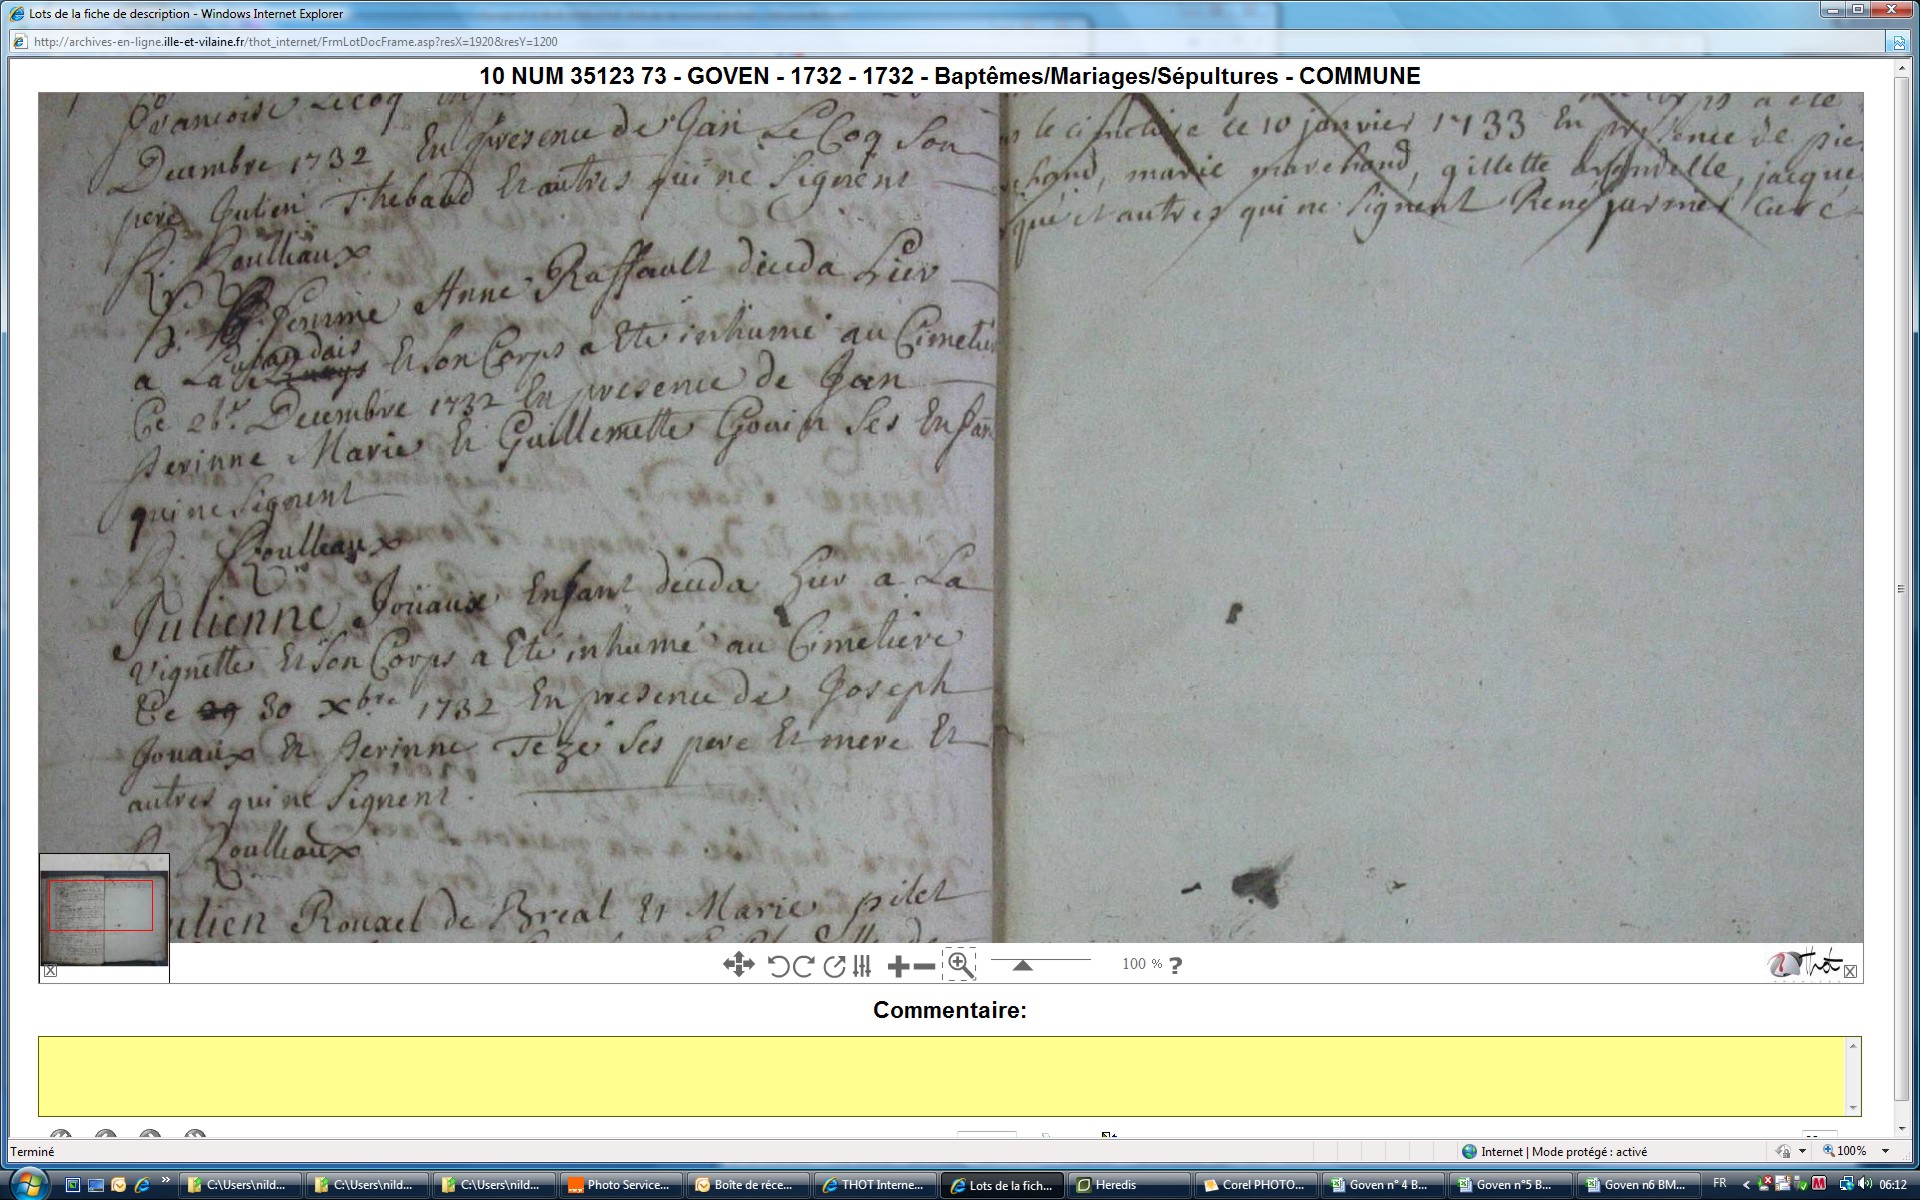 Lots de la fiche de description - Windows Internet Explorer
http://archives-en-ligne.ille-et-vilaine.fr/thot_internet/FrmLotDocFrame.asp?resX=1920&resY=1200
10 NUM 35123 73 - GOVEN - 1732 - 1732 - Baptêmes/Mariages/Sépultures - COMMUNE
francoise Lecoq
Decembre 1732 En presence de Jan Le Coq Son
pere Julien Thebaud Et autres qui ne Signent
Roulleaux
femme Anne Raffault deceda hier
a La Et Son Corps a Ete inhumé au Cimetie
Ce Decembre 1732 En presence de Jan
Perinne Marie Et Guillemette Gouin Ses Enfan
qui ne Signent
Roulleaux
Julienne Joüaux Enfant deceda hier a La
Vignette Et Son Corps a Ete inhumé au Cimetiere
Ce 29 30 xbre 1732 En presence de Joseph
Jouaux Et Perinne Tezé Ses pere Et mere Et
autres qui ne Signent.
Roulleaux
ulien Rouael de Breal Et Marie pilet
le cimetiere ce 10 janvier 1733 En presence de pie
chand, marie marchand, gillette jacque
que et autres qui ne Signent René curé
Commentaire:
100 % ?
Thot
Terminé
Internet | Mode protégé : activé
100%
C:\Users\nild...
C:\Users\nild...
C:\Users\nild...
Photo Service...
Boîte de réce...
THOT Interne...
Lots de la fich...
Heredis
Corel PHOTO...
Goven n° 4 B...
Goven n°5 B...
Goven n6 BM...
FR
06:12